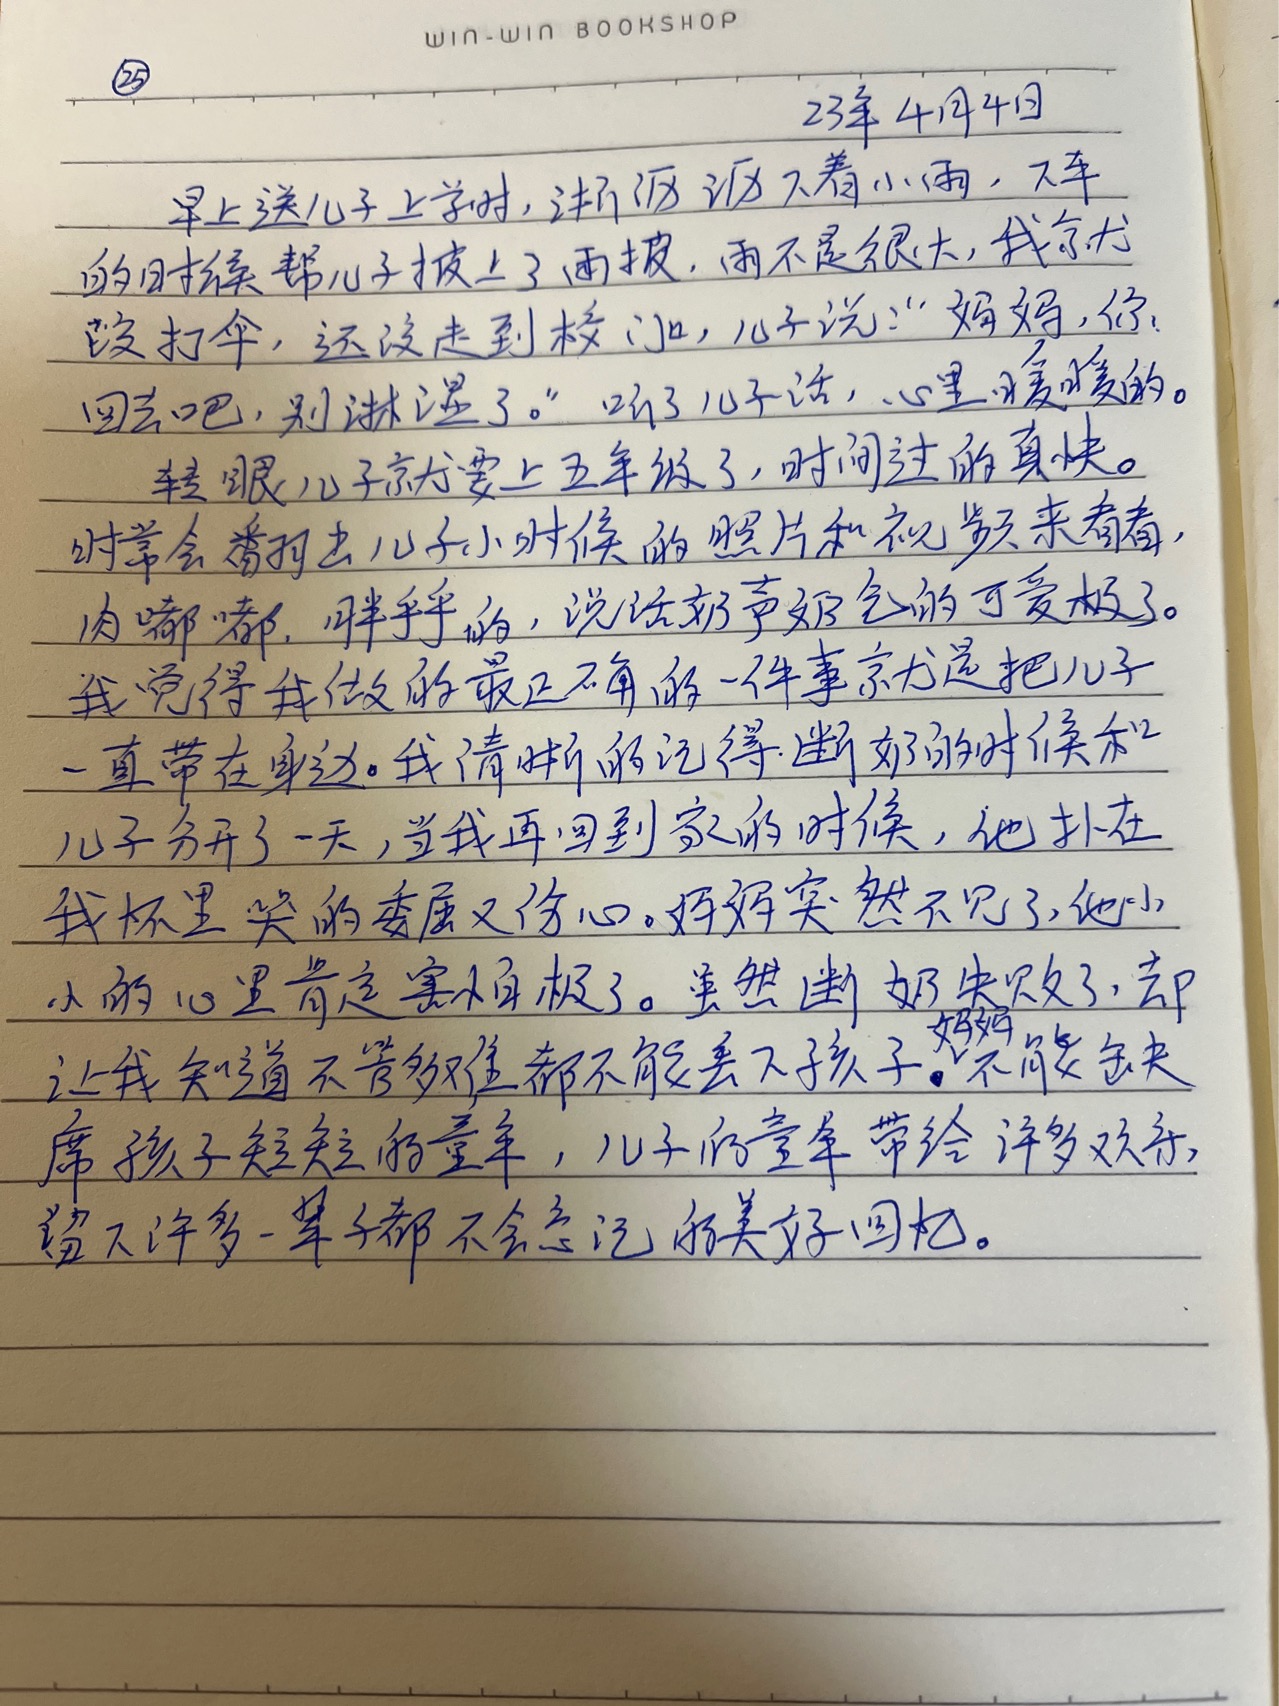 WIN-WIN BOOKSHOP
㉕
23年4月4日
早上送儿子上学时,淅沥沥下着小雨,下车
的时候帮儿子披上了雨披,雨不是很大,我就
没打伞,还没走到校门口,儿子说:“妈妈,你
回去吧,别淋湿了。”听了儿子话,心里暖暖的。
转眼儿子就要上五年级了,时间过的真快。
时常会翻出儿子小时候的照片和视频来看看,
肉嘟嘟,胖乎乎的,说话奶声奶气的可爱极了。
我觉得我做的最正确的一件事就是把儿子
一直带在身边。我清晰的记得断奶的时候和
儿子分开了一天,当我再回到家的时候,他扑在
我怀里哭的委屈又伤心。妈妈突然不见了,他小
小的心里肯定害怕极了。虽然断奶失败了,却
让我知道不管多难都不能丢下孩子。妈妈不能缺
席孩子短短的童年,儿子的童年带给许多欢乐,
留下许多一辈子都不会忘记的美好回忆。